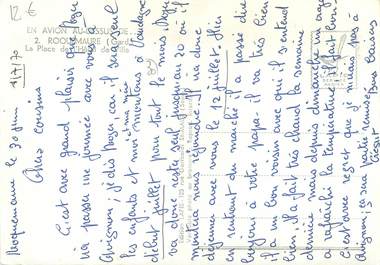 12 €
EN AVION AU-DESSUS DE...
2. ROQUEMAURE (Gard)
La Place de
Roquemaure le 30 juin 1970
Chers cousins
C'est avec grand plaisir que Roger
va passer une journée avec vous à
Avignon ; je dis Roger, car il sera seul
les enfants et moi montons à
début juillet pour tout le mois. Roger
va donc rester seul jusqu'au 20 où il
montera nous rejoindre. Il ira donc
déjeuner avec vous le 12 juillet. Hier
en rentrant du marché il a passé dire
bonjour à votre papa. il va très bien
il a un bon voisin avec qui il s'entend
bien. Il a fait très chaud la semaine
dernière, mais depuis dimanche un orage
a rafraîchi la température il fait bon.
C'est avec regret que je n'irai pas à
Avignon, ça sera partie remise
Bons baisers